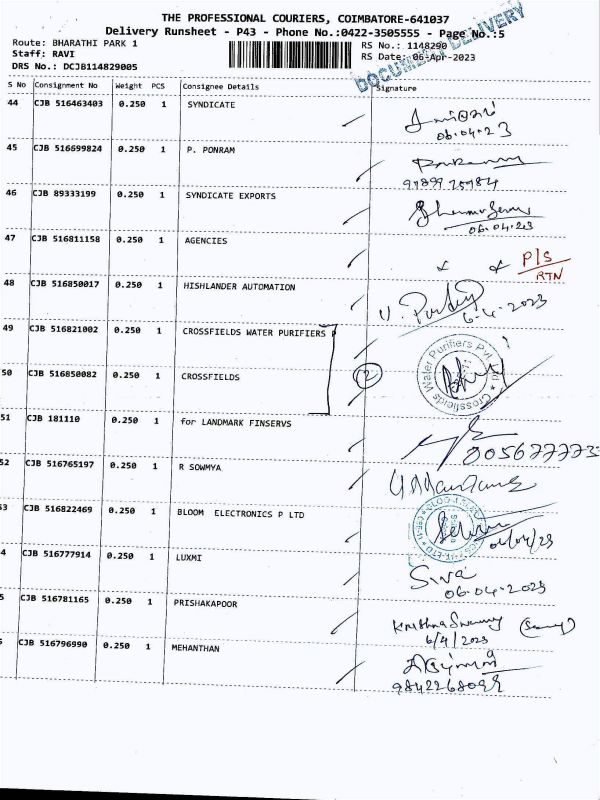 THE PROFESSIONAL COURIERS, COIMBATORE-641037
Delivery Runsheet - P43 - Phone No.:0422-3505555 - Page No.:5
Route: BHARATHI PARK 1
Staff: RAVI
DRS No.: DCJB114829005
RS No.: 1148290
RS Date: 06-Apr-2023
DOCUMENT DELIVERY
S No Consignment No Weight PCS Consignee Details Signature
44 CJB 516463403 0.250 1 SYNDICATE
06.04.23
45 CJB 516699824 0.250 1 P. PONRAM
46 CJB 89333199 0.250 1 SYNDICATE EXPORTS
06.04.23
47 CJB 516811158 0.250 1 AGENCIES
P/S
RTN
48 CJB 516850017 0.250 1 HISHLANDER AUTOMATION
6-4-2023
49 CJB 516821002 0.250 1 CROSSFIELDS WATER PURIFIERS P
50 CJB 516850082 0.250 1 CROSSFIELDS
2
Crossfields Water Purifiers Pvt. Ltd
51 CJB 181110 0.250 1 for LANDMARK FINSERVS
52 CJB 516765197 0.250 1 R SOWMYA
53 CJB 516822469 0.250 1 BLOOM ELECTRONICS P LTD
4 CJB 516777914 0.250 1 LUXMI
Siva
06.04.2023
5 CJB 516781165 0.250 1 PRISHAKAPOOR
6/4/2023
CJB 516796990 0.250 1 MEHANTHAN